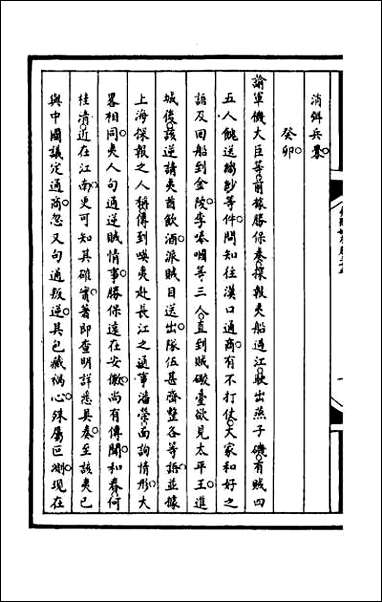 消弭兵釁
癸卯
諭軍機大臣等前據勝保奏探報夷船過江駛出燕子磯有賊四
五人饒送綢鈔等件問知往漢口通商有不打仗大家和好之
語及回船到金陵李嗁嘓等三人直到賊礮臺欲見太平王進
城後該逆請夷酋飲酒派賊目送出隊伍甚齊整各等語並據
上海探報之人稱傳到嘆夷赴長江之通事潘榮面詢情形大
畧相同夷人句通逆賊情事勝保遠在安徽尚有傳聞和春何
桂清近在江南更可知其確實著即查明詳悉具奏至該夷已
與中國議定通商忽又句通叛逆具包藏禍心殊屬叵測現在